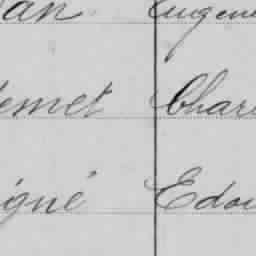 an Eugene
emet Char
igné Edou